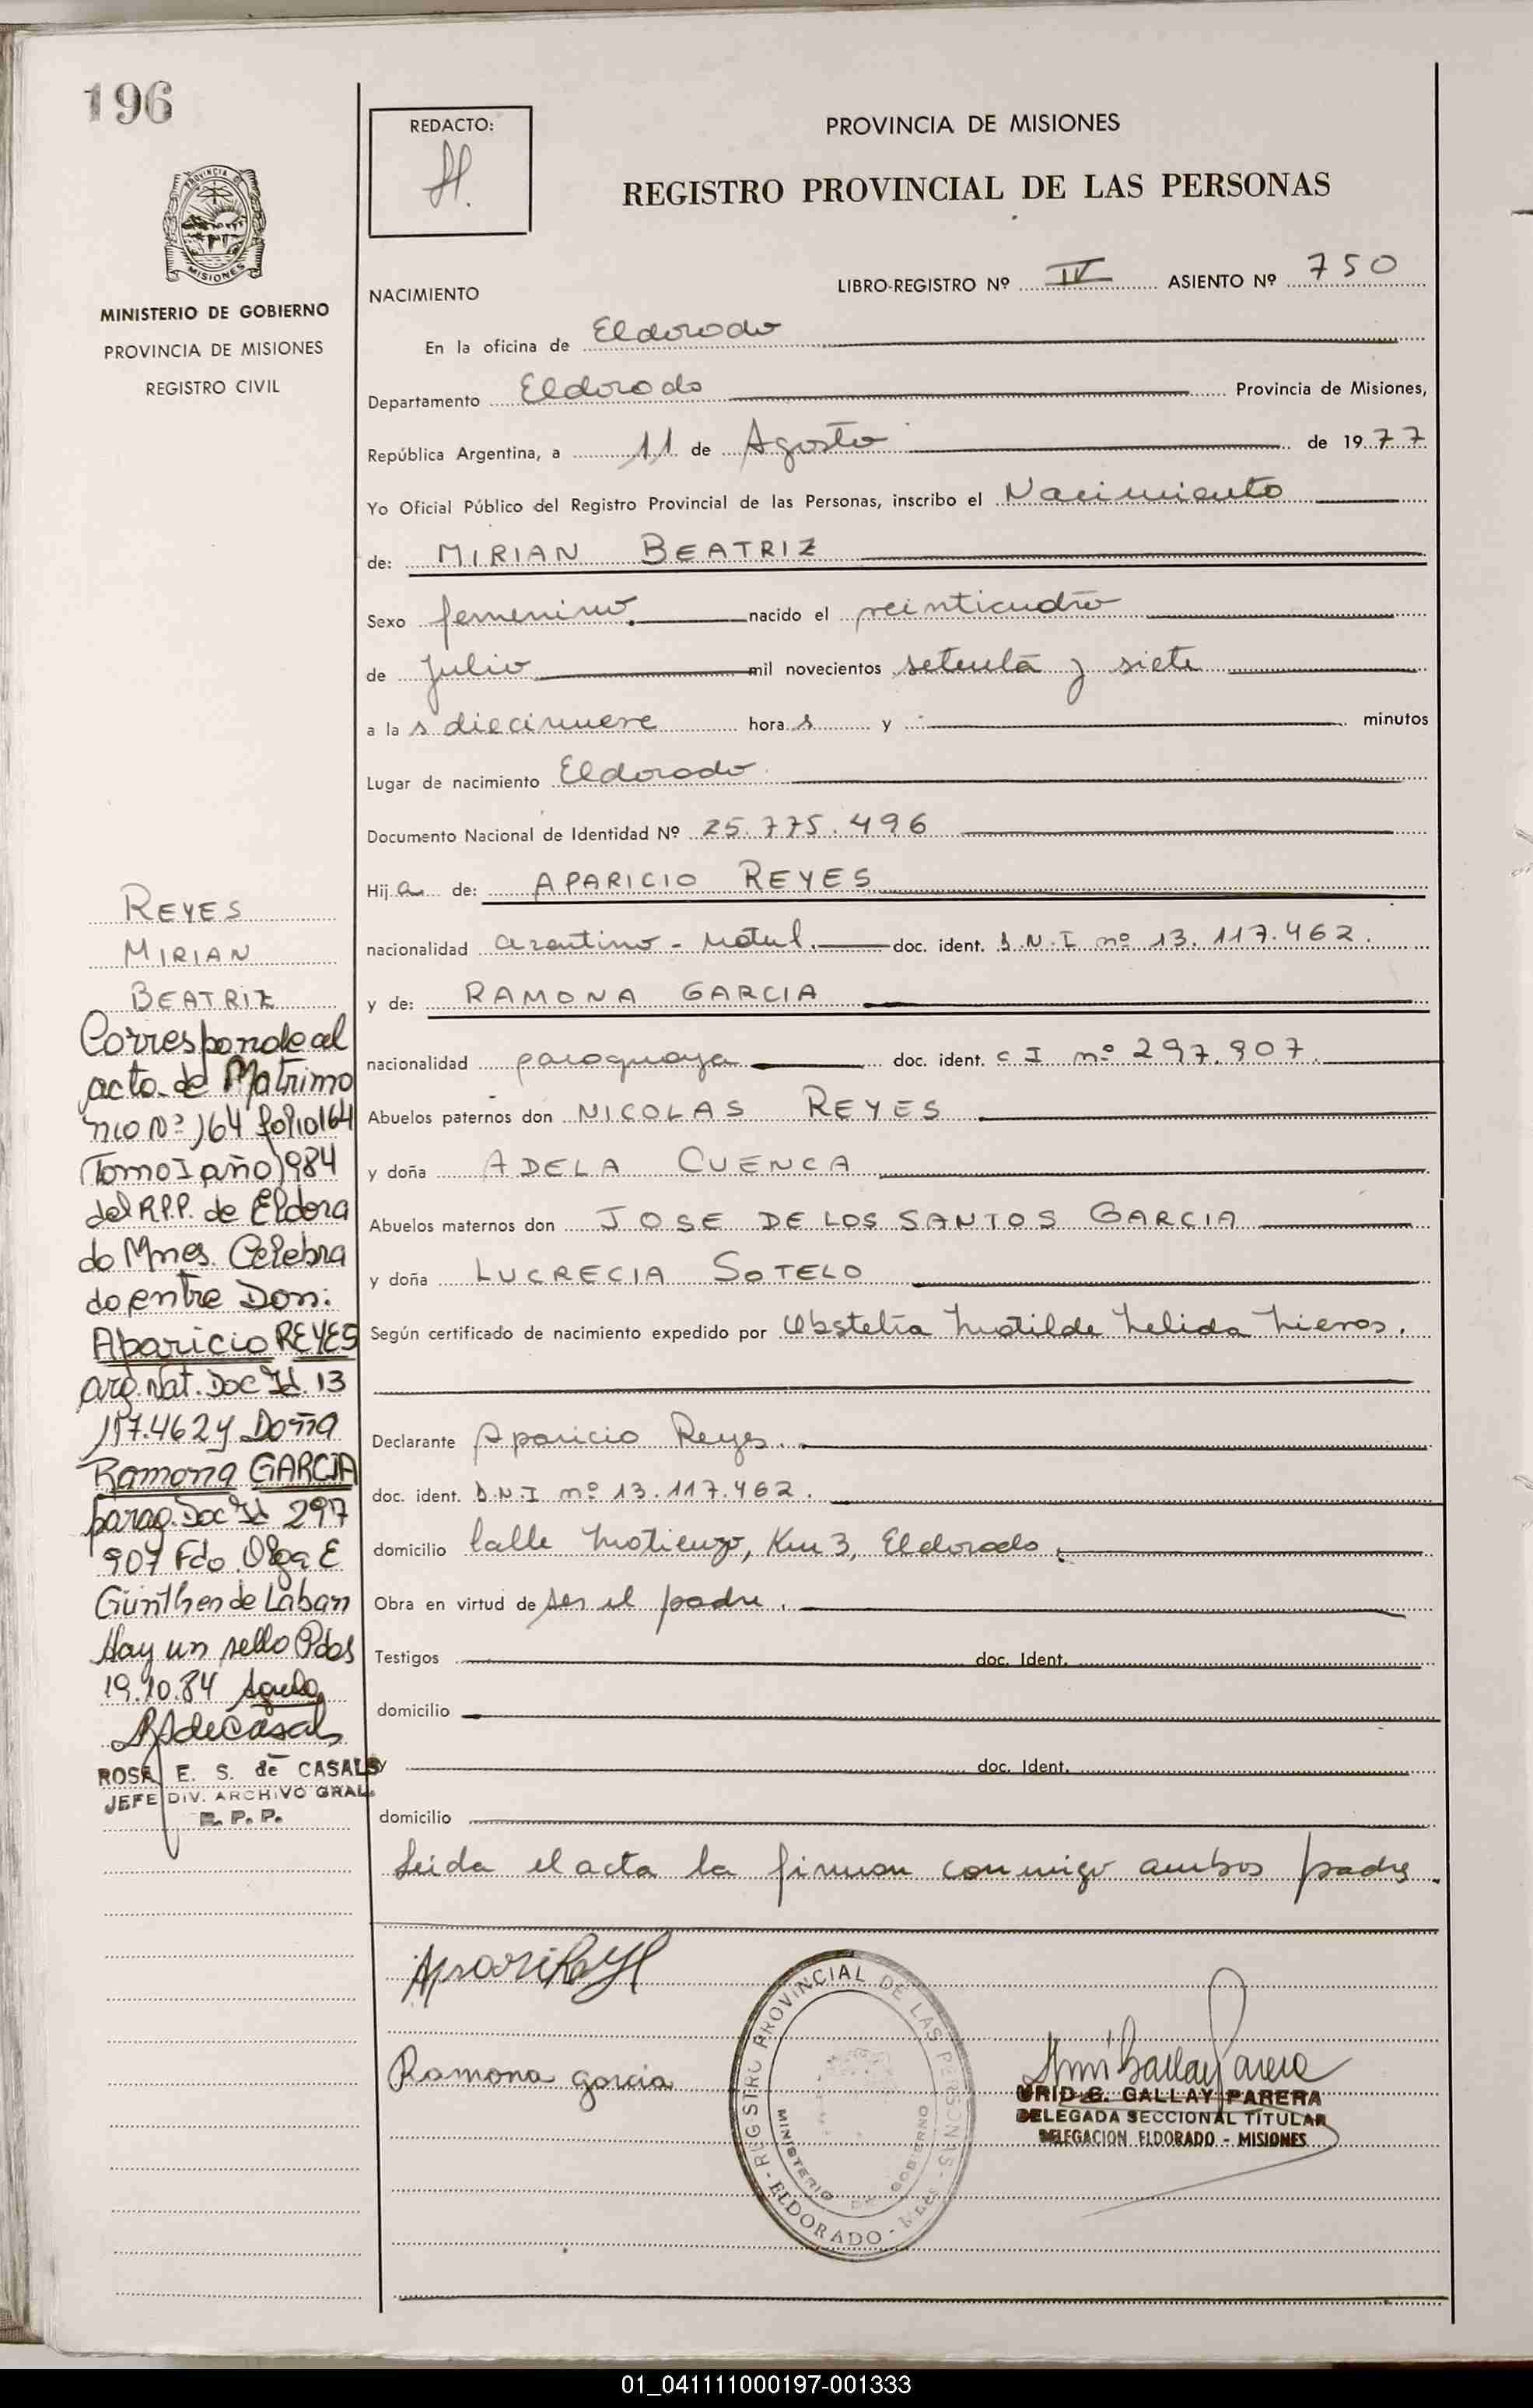 196
PROVINCIA DE MISIONES
MINISTERIO DE GOBIERNO
PROVINCIA DE MISIONES
REGISTRO CIVIL
REYES
MIRIAN
BEATRIZ
Corresponde al
acta de Matrimo
nio Nº 164 folio 164
Tomo I año 1984
del R.P.P. de Eldora
do Mnes. Celebra
do entre Don:
Aparicio REYES
arg. Nat. Doc Id. 13
117.462 y Doña
Ramona GARCIA
parag. Doc Id 297
907 Fdo. Olga E
Günther de Laban
Hay un sello Pdas
19.10.84
RS de Casals
ROSA E. S. de CASALS
JEFE DIV. ARCHIVO GRAL.
R. P. P.
REDACTO:
PROVINCIA DE MISIONES
REGISTRO PROVINCIAL DE LAS PERSONAS
NACIMIENTO LIBRO-REGISTRO Nº IV ASIENTO Nº 750
En la oficina de Eldorado
Departamento Eldorado Provincia de Misiones,
República Argentina, a 11 de Agosto de 1977
Yo Oficial Público del Registro Provincial de las Personas, inscribo el Nacimiento
de: MIRIAN BEATRIZ
Sexo femenino. nacido el veinticuatro
de Julio mil novecientos setenta y siete
a la s diecinueve hora s y minutos
Lugar de nacimiento Eldorado
Documento Nacional de Identidad Nº 25.775.496
Hij a de: APARICIO REYES
nacionalidad argentino - Natul. doc. ident. D.N.I nº 13.117.462.
y de: RAMONA GARCIA
nacionalidad paraguaya doc. ident. C I nº 297.907.
Abuelos paternos don NICOLAS REYES
y doña ADELA CUENCA
Abuelos maternos don JOSE DE LOS SANTOS GARCIA
y doña LUCRECIA SOTELO
Según certificado de nacimiento expedido por Obstetra Matilde Nelida
Declarante Aparicio Reyes.
doc. ident. D.N.I nº 13.117.462.
domicilio Calle Matienzo, Km 3, Eldorado.
Obra en virtud de ser el padre.
Testigos doc. Ident.
domicilio
y doc. Ident.
domicilio
Leida el acta la firman conmigo ambos padres.
Ramona garcia
REGISTRO PROVINCIAL DE LAS PERSONAS - ELDORADO - Mnes
MINISTERIO DE GOBIERNO
URID G. GALLAY PARERA
DELEGADA SECCIONAL TITULAR
DELEGACION ELDORADO - MISIONES
01_041111000197-001333